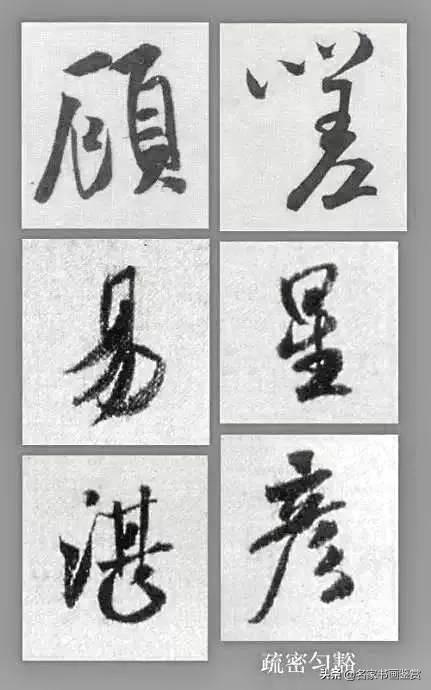 顧 嗟
易 星
湛 彦
疏密匀豁
头条@名家书画鉴赏